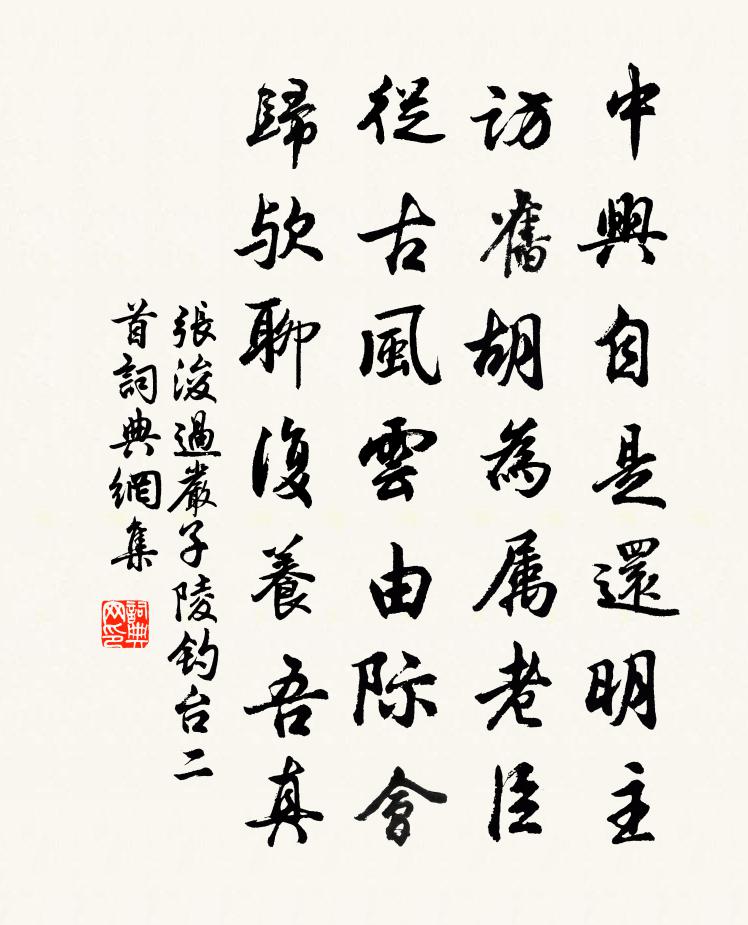 中興自是還明主
訪舊胡為属老臣
從古風雲由際會
歸欤聊復養吾真
張浚過嚴子陵釣台二
首詞典網集
詞典
网印